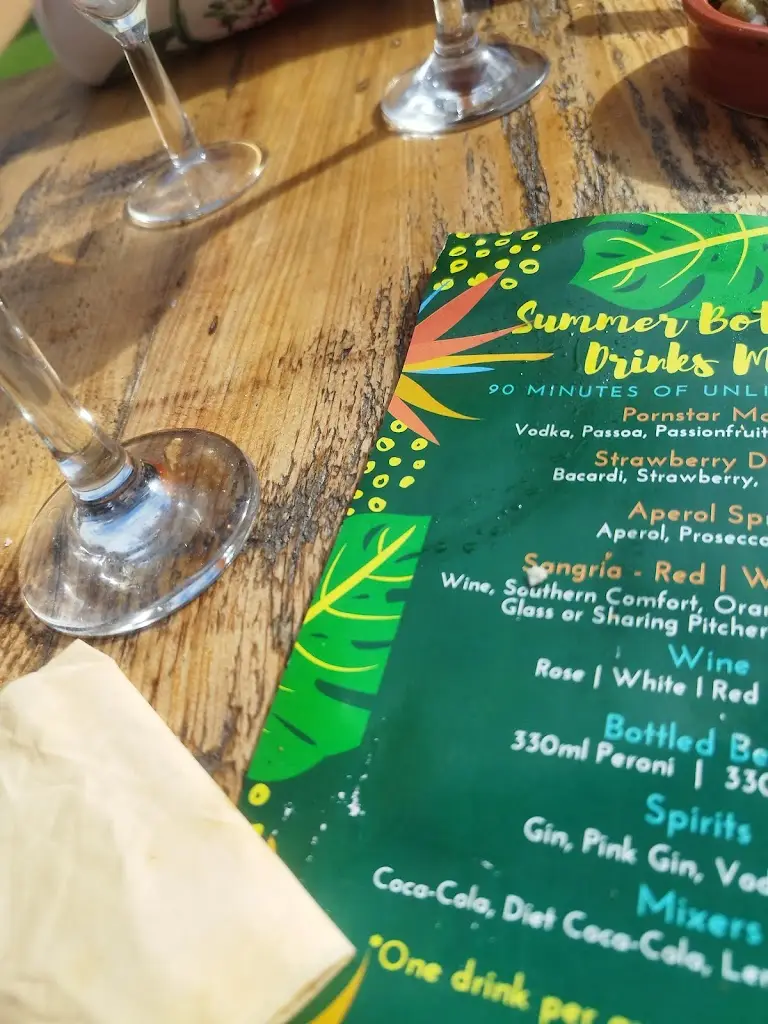 Summer Bot
Drinks M
90 MINUTES OF UNLI
Pornstar Ma
Vodka, Passoa, Passionfruit
Strawberry D
Bacardi, Strawberry,
Aperol Spr
Aperol, Prosecco
Sangria - Red | W
Wine, Southern Comfort, Oran
Glass or Sharing Pitcher
Wine
Rose | White | Red
Bottled Be
330ml Peroni | 330
Spirits
Gin, Pink Gin, Vod
Mixers
Coca-Cola, Diet Coca-Cola, Lem
*One drink per